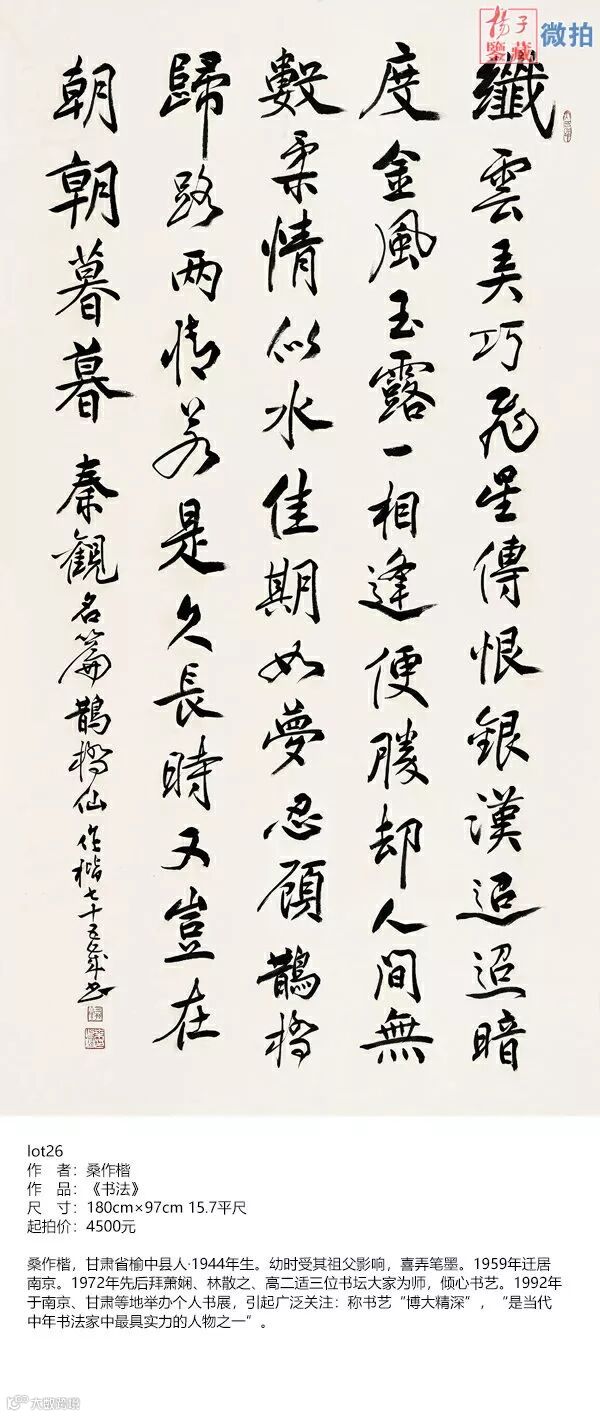 揚子
鑒藏
微拍
纖雲弄巧飛星傳恨銀漢迢迢暗
度金風玉露一相逢便勝却人間無
數柔情似水佳期如夢忍顧鵲橋
歸路两情若是久長時又豈在
朝朝暮暮 秦觀名篇鵲橋仙 作楷七十五歲書
lot26
作 者：桑作楷
作 品：《书法》
尺 寸：180cm×97cm 15.7平尺
起拍价：4500元
桑作楷，甘肃省榆中县人·1944年生。幼时受其祖父影响，喜弄笔墨。1959年迁居
南京。1972年先后拜萧娴、林散之、高二适三位书坛大家为师，倾心书艺。1992年
于南京、甘肃等地举办个人书展，引起广泛关注：称书艺“博大精深”，“是当代
中年书法家中最具实力的人物之一”。
大数跨境